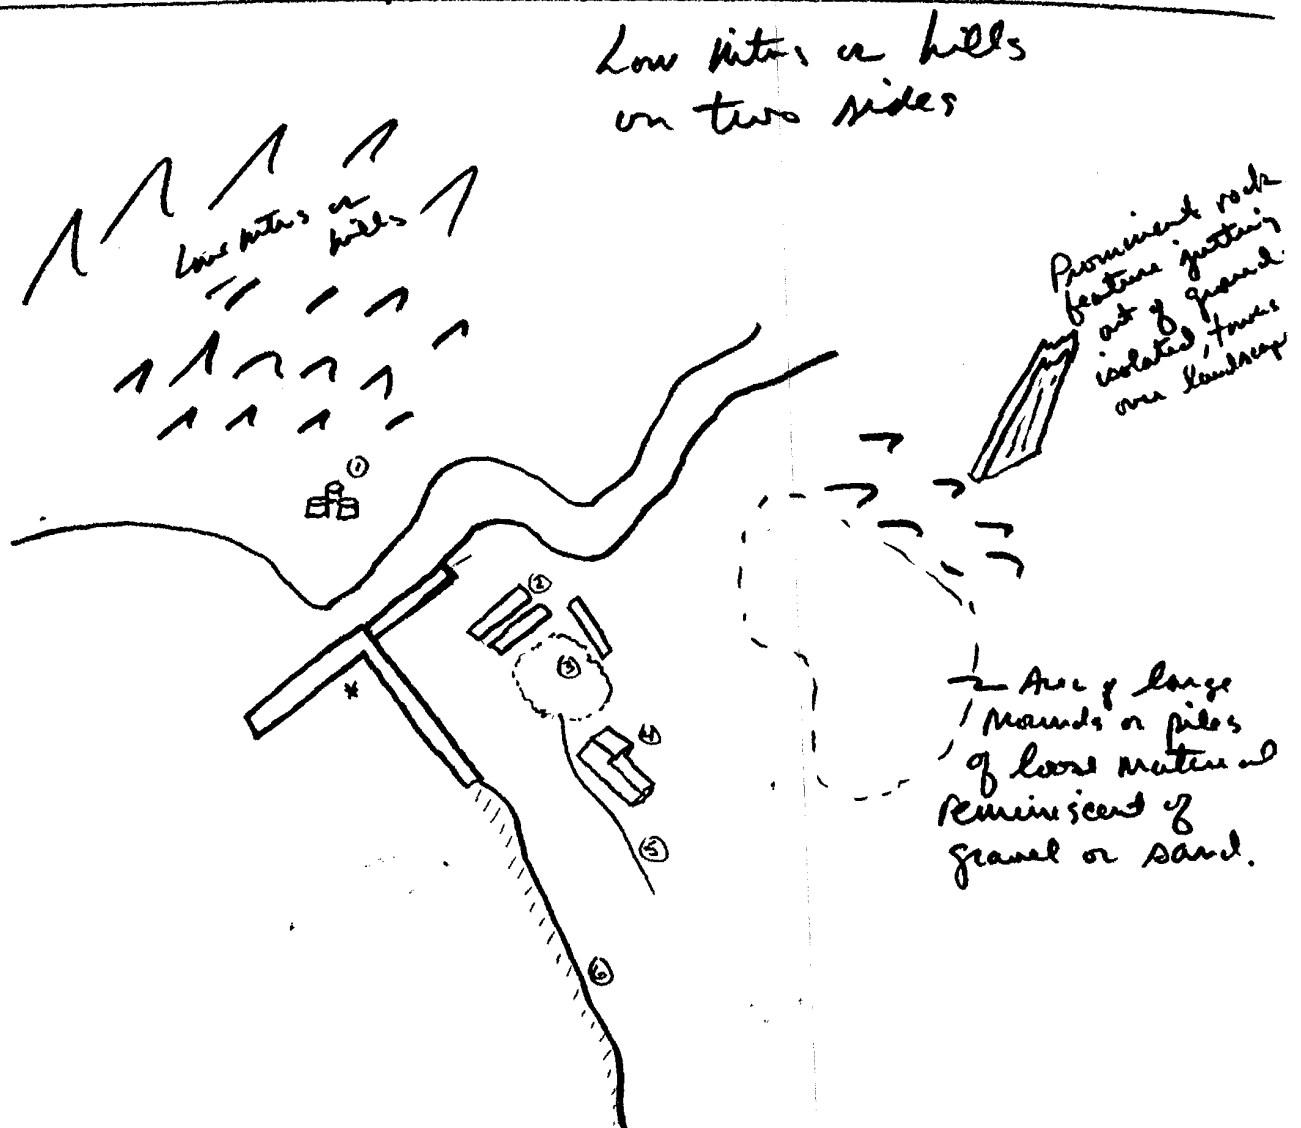 Low mtns or hills
on two sides
Low mtns or
hills
Prominent rock
feature jutting
out of ground.
isolated, towers
over landscape
1
2
3
4
5
6
*
Area of large
mounds or piles
of loose material
reminiscent of
gravel or sand.